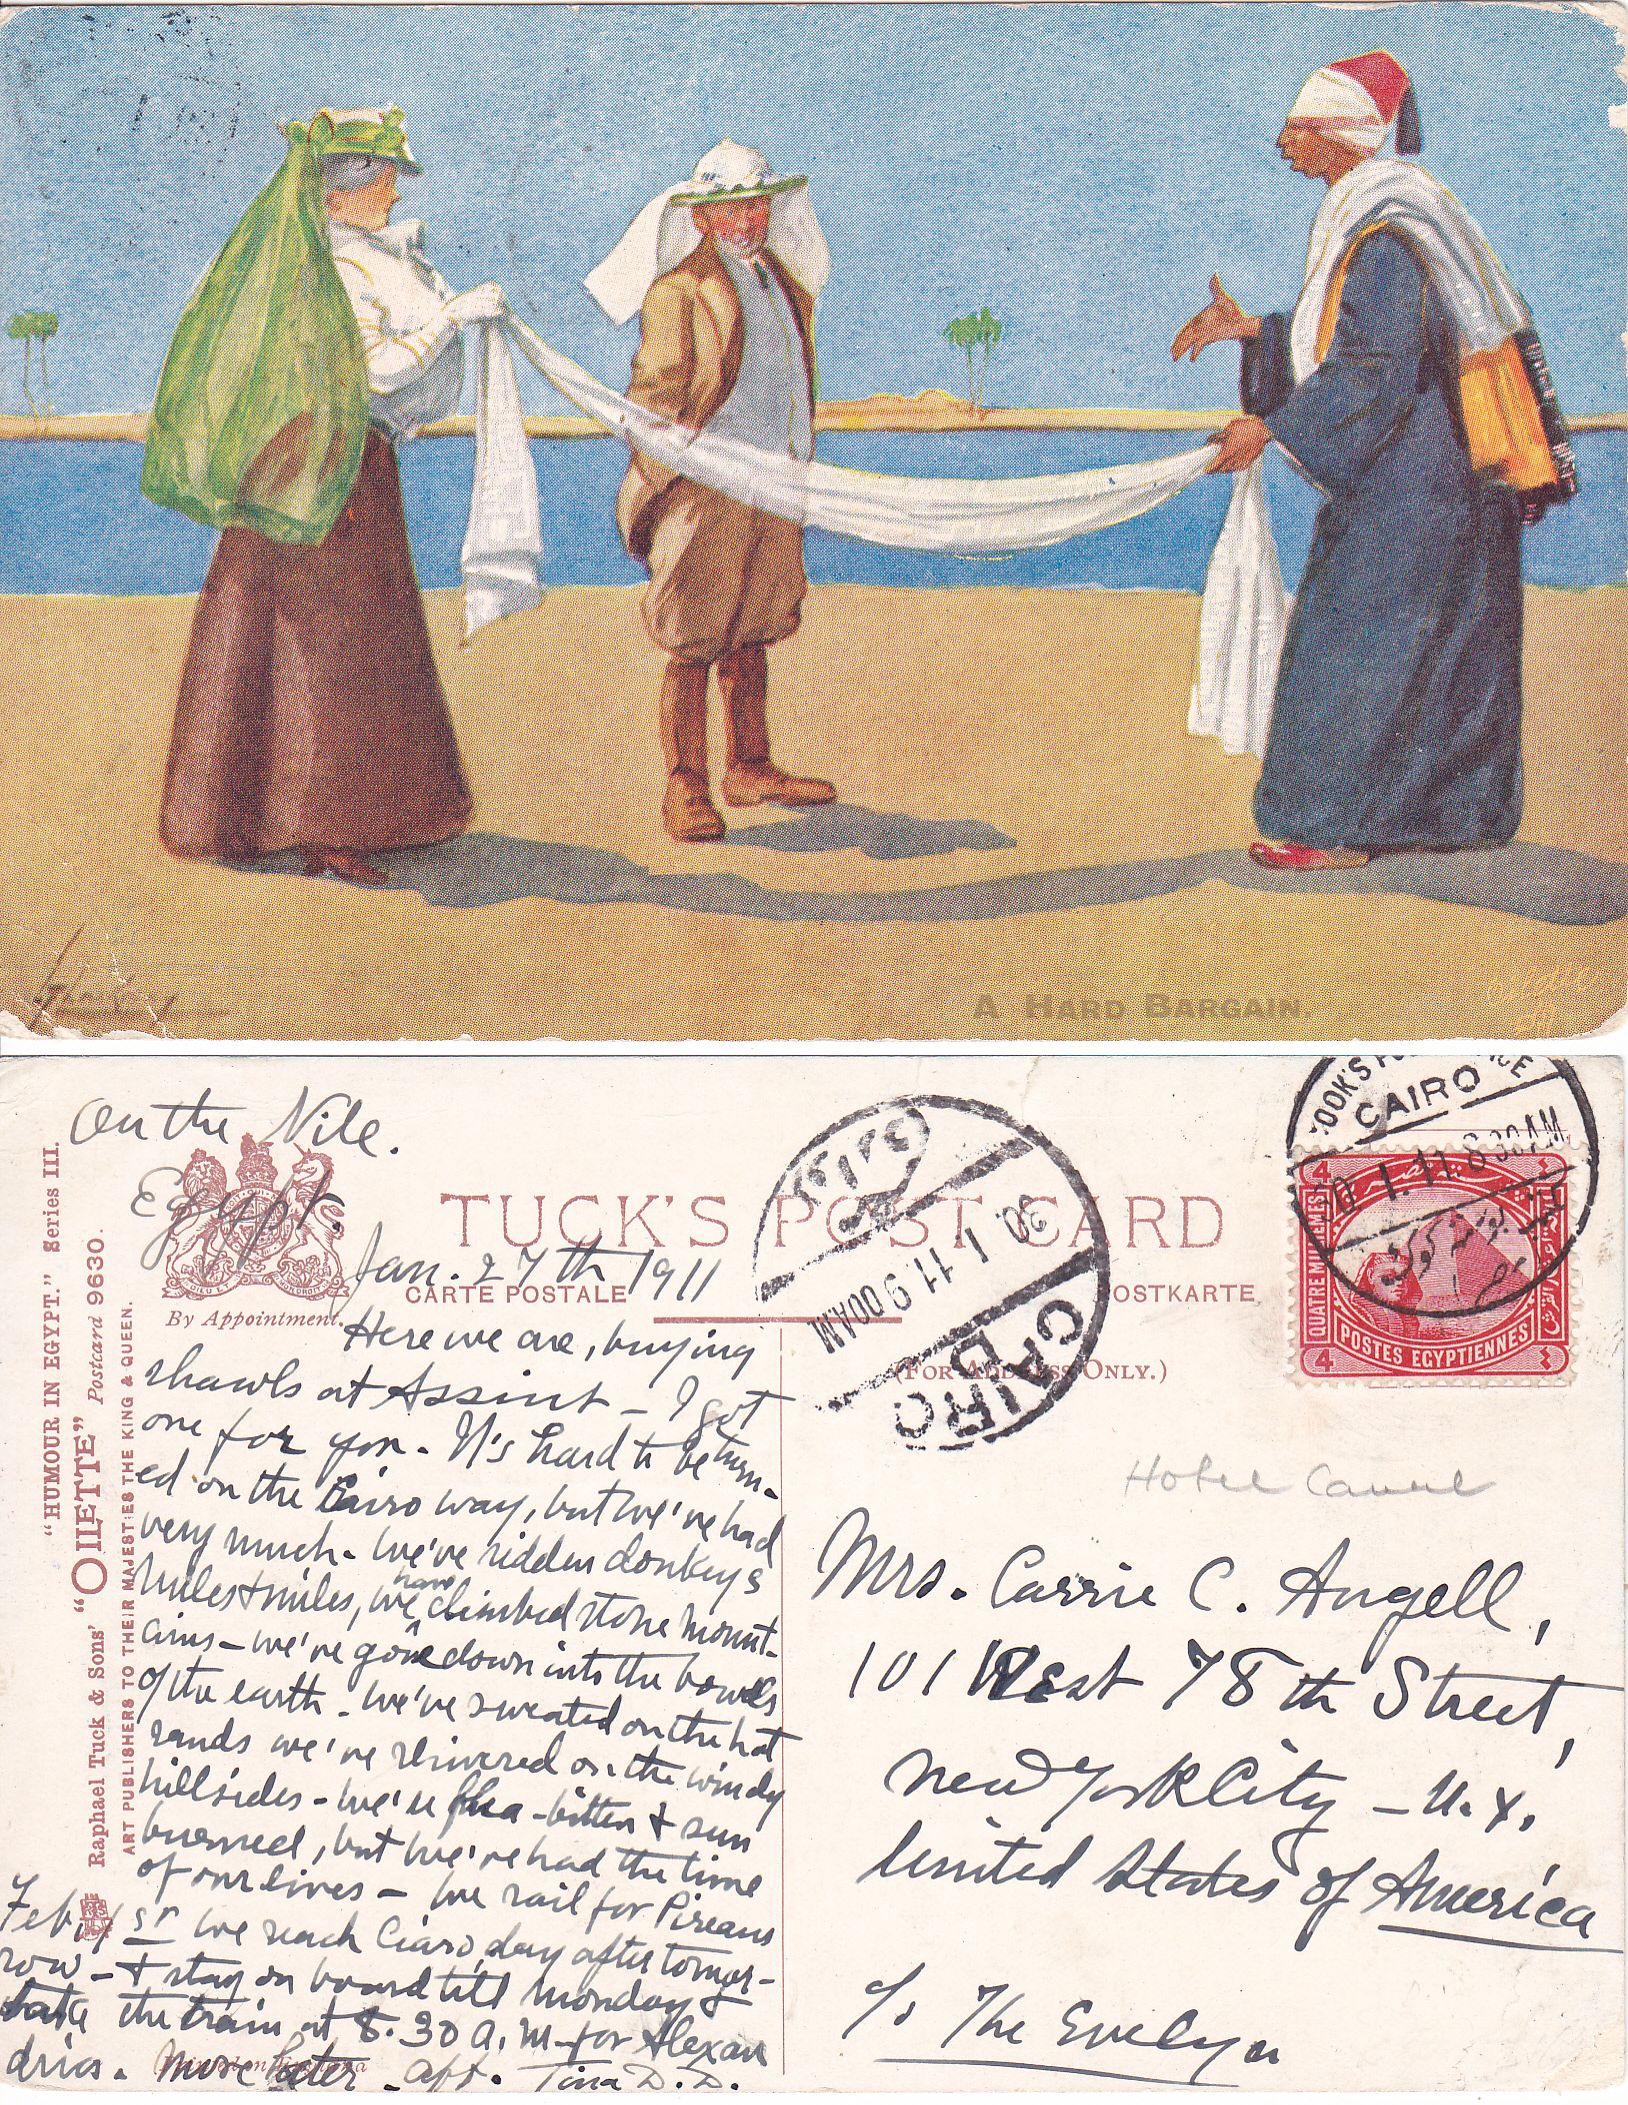 A HARD BARGAIN.
"HUMOUR IN EGYPT." Series III.
Raphael Tuck & Sons' "OILETTE" Postcard 9630.
ART PUBLISHERS TO THEIR MAJESTIES THE KING & QUEEN.
By Appointment.
TUCK'S POST CARD
CARTE POSTALE
POSTKARTE
(FOR ADDRESS ONLY.)
CAIRO
30 I 11 9 00AM
CAIRO
30.1.11.8 30AM
4
QUATRE MILLIEMES
POSTES EGYPTIENNES
4
On the Nile.
Egypt.
Jan. 27th 1911
Here we are, buying
shawls at Assiut - I got
one for you. It's hard to be turn-
ed on the Cairo way, but we've had
very much. We've ridden donkeys
miles & miles, we have climbed stone mount-
ains - we've gone down into the bowels
of the earth. We've sweated on the hot
sands we've shivered on the windy
hillsides - we're flea-bitten & sun
burned, but we've had the time
of our lives - We sail for Pireaus
Feb. 1st we reach Ciaro, day after tomor-
row - & stay on board till Monday &
take the train at 8.30 A.M. for Alexan
dria. More later - aft. Tina D.D.
Hotel
Mrs. Carrie C. Angell,
101 West 78th Street,
New York City - N.Y.
United States of America
c/o The Evelyn